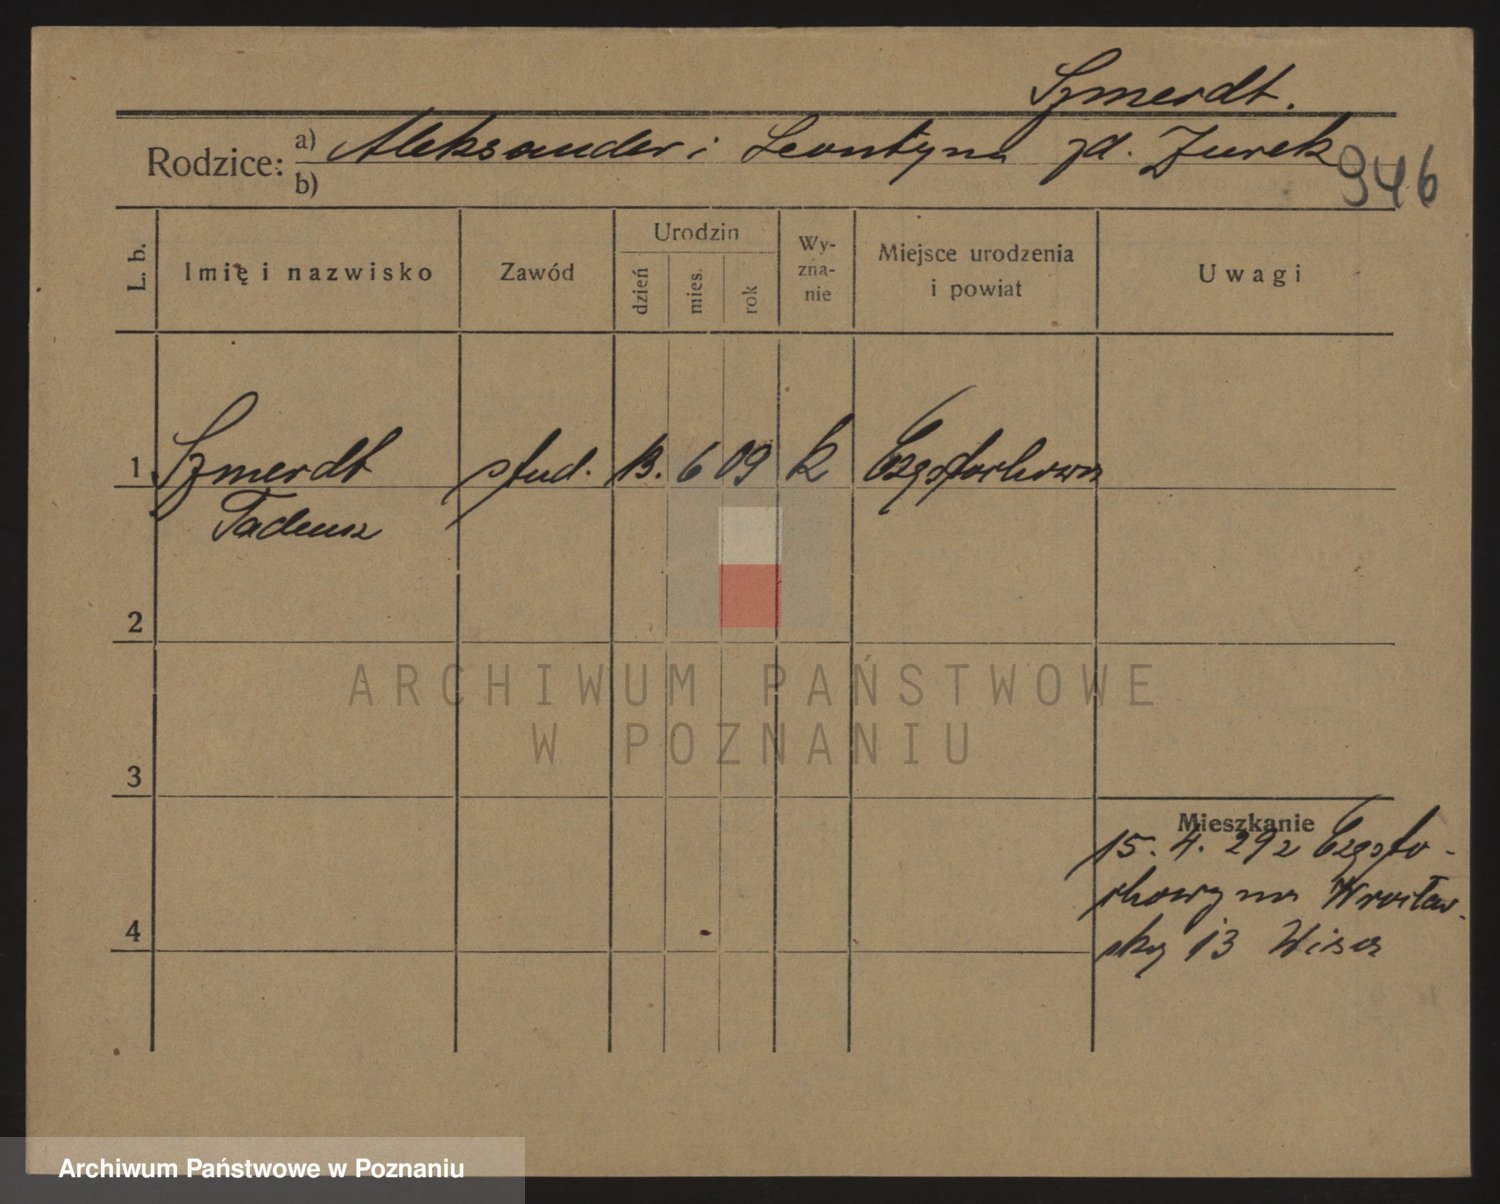 Szmerdt.
Rodzice: a) Aleksander i Leontyna zd. Żurek
b)
946
L. b.
Imię i nazwisko
Zawód
Urodzin
dzień
mies.
rok
Wy-
zna-
nie
Miejsce urodzenia
i powiat
Uwagi
1 Szmerdt stud. 13. 6 09 k Częstochowa
Tadeusz
2
3
4
Mieszkanie
15. 4. 29 z Często-
chowy na Wrocław-
sky 13
ARCHIWUM PAŃSTWOWE
W POZNANIU
Archiwum Państwowe w Poznaniu